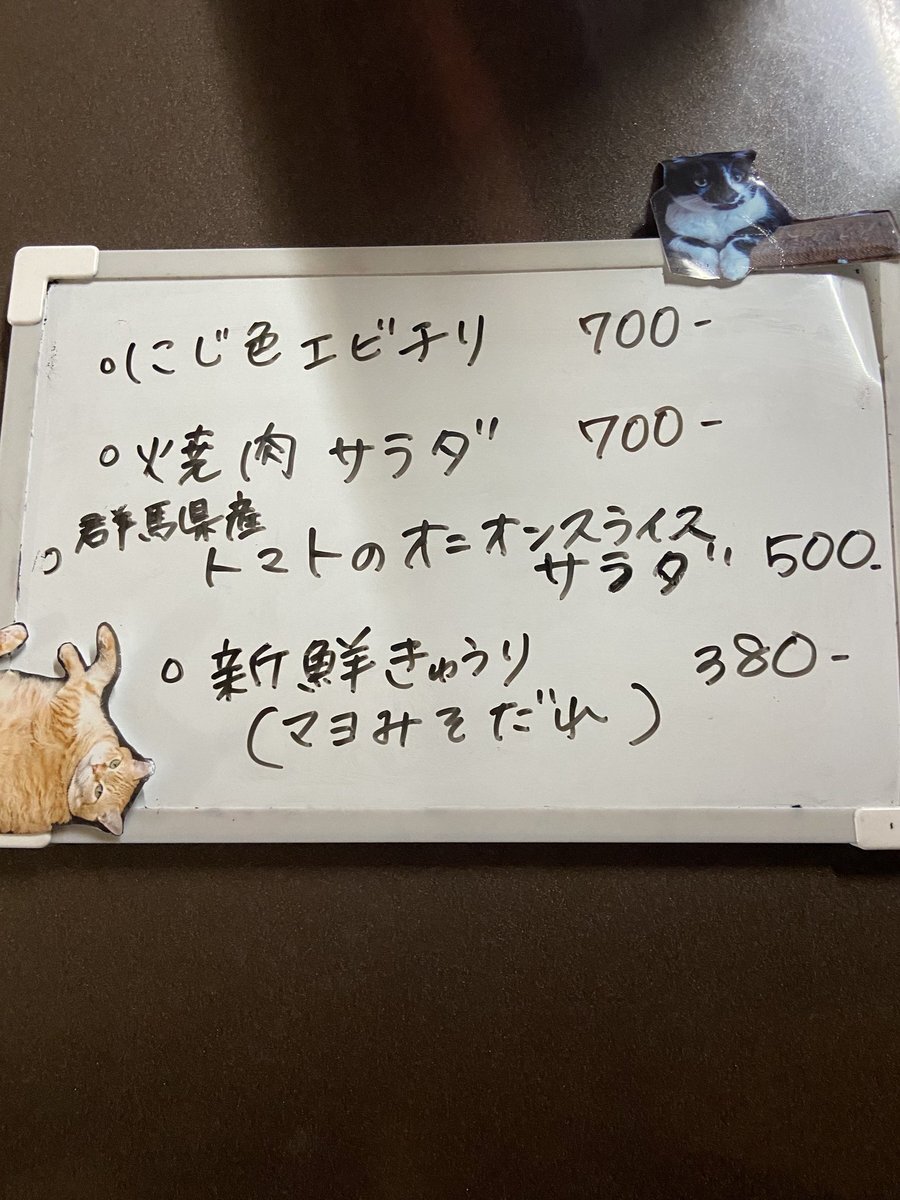 ○にじ色エビチリ 700-
○焼肉サラダ 700-
○群馬県産
トマトのオニオンスライス
サラダ 500-
○新鮮きゅうり 380-
(マヨみそだれ)